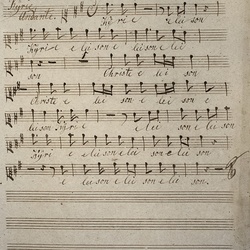 Kyrie
Andante.
Kyri e e lei son
Kyri e e lei son e lei son e lei
son Christe e lei son
Christe e lei son e lei son e
lei son Kyri e e lei son e lei
Kyri e e lei son e lei son e lei
e lei son e lei son e lei son.